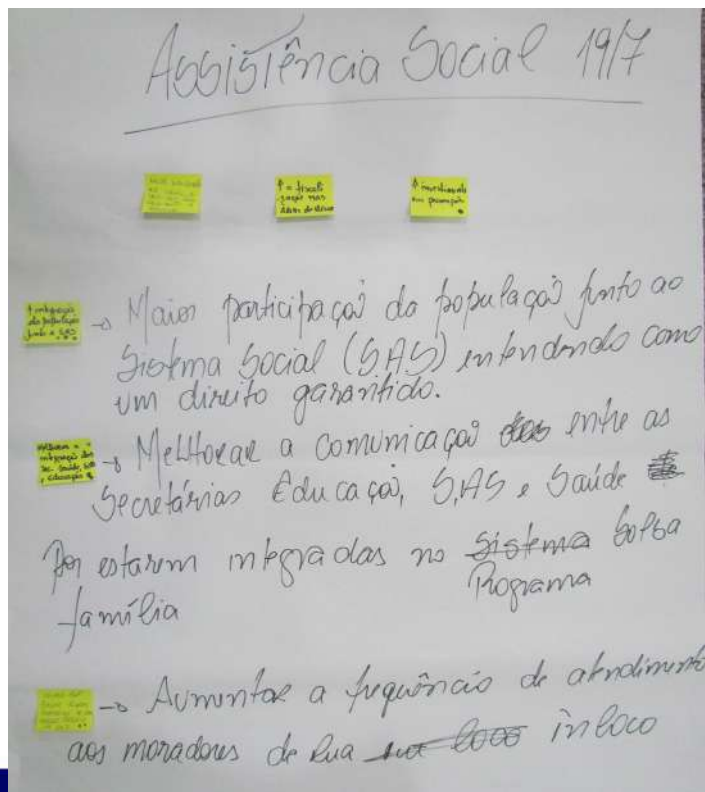 Assistência Social 19/7
↑ a fiscali
zação nas
↑ investimento
em prevenção
↑ integração
da população
junto a SAS
→ Maior participação da população junto ao
Sistema Social (S.A.S) entendendo como
um direito garantido.
Melhorar a
integração das
Sec. Saúde, SAS
e educação
→ Melhorar a comunicação entre as
Secretárias Educação, S.AS e Saúde
Por estarem integradas no Sistema Bolsa
Programa
família
→ Aumentar a frequência de atendimento
aos moradores de Rua in loco